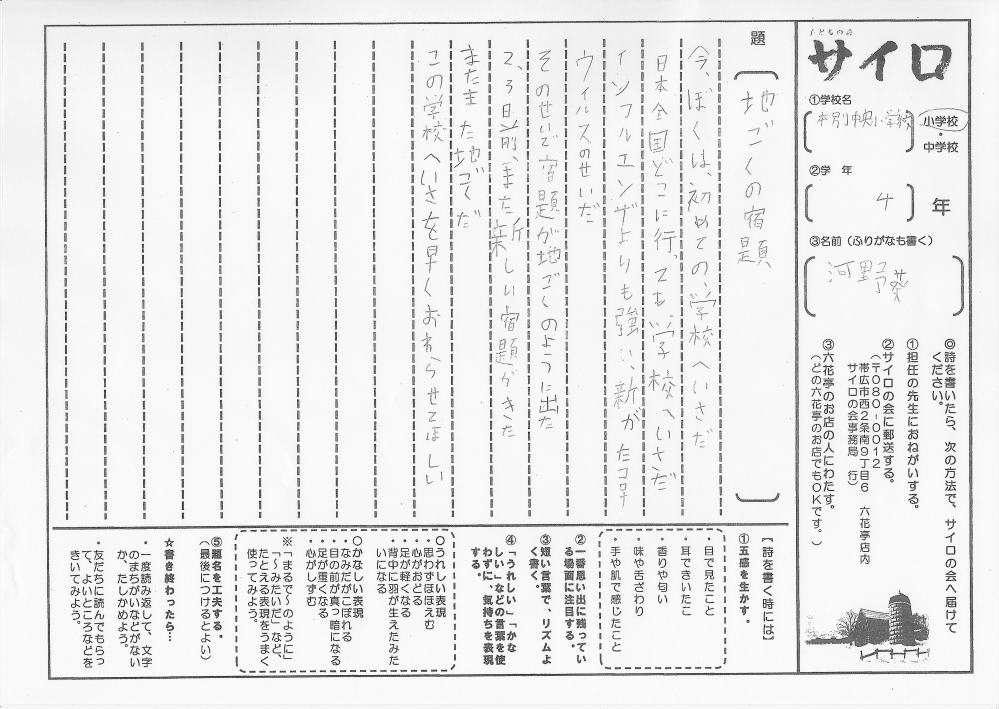 こどもの詩
サイロ
①学校名
本別中央小学校
小学校
・
中学校
②学 年
4
年
③名前（ふりがなも書く）
河野葵
◎詩を書いたら、次の方法で、サイロの会へ届けて
ください。
①担任の先生におねがいする。
②サイロの会に郵送する。
（〒０８０−００１２
帯広市西２条南９丁目６ 六花亭店内
サイロの会事務局 行）
③六花亭のお店の人にわたす。
（どの六花亭のお店でもＯＫです。）
題
地ごくの宿題
今、ぼくは、初めての、学校へいさだ
日本全国どこに行っても、学校へいさだ
インフルエンザよりも強い、新がたコロナ
ウィルスのせいだ
そのせいで宿題が地ごくのように出た
2、3日前、また新しい宿題がきた
またまた地ごくだ
この学校へいさを早くおわらせてほしい
【詩を書く時には】
①五感を生かす。
・目で見たこと
・耳できいたこと
・香りや匂い
・味や舌ざわり
・手や肌で感じたこと
②一番思い出に残ってい
る場面に注目する。
③短い言葉で、リズムよ
く書く。
④「うれしい」「かな
しい」などの言葉を使
わずに、気持ちを表現
する。
○うれしい表現
・思わずほほえむ
・心がおどる
・足が軽くなる
・背中に羽が生えたみた
いになる
○かなしい表現
・なみだがこぼれる
・目の前が真っ暗になる
・足が重くなる
・心がしずむ
※「まるで〜のように」
「〜みたいだ」など、
たとえる表現をうまく
使ってみよう。
⑤題名を工夫する。
（最後につけるとよい）
★書き終わったら…
・一度読み返して、文字
のまちがいなどがない
か、たしかめよう。
・友だちに読んでもらっ
て、よいところなどを
きいてみよう。